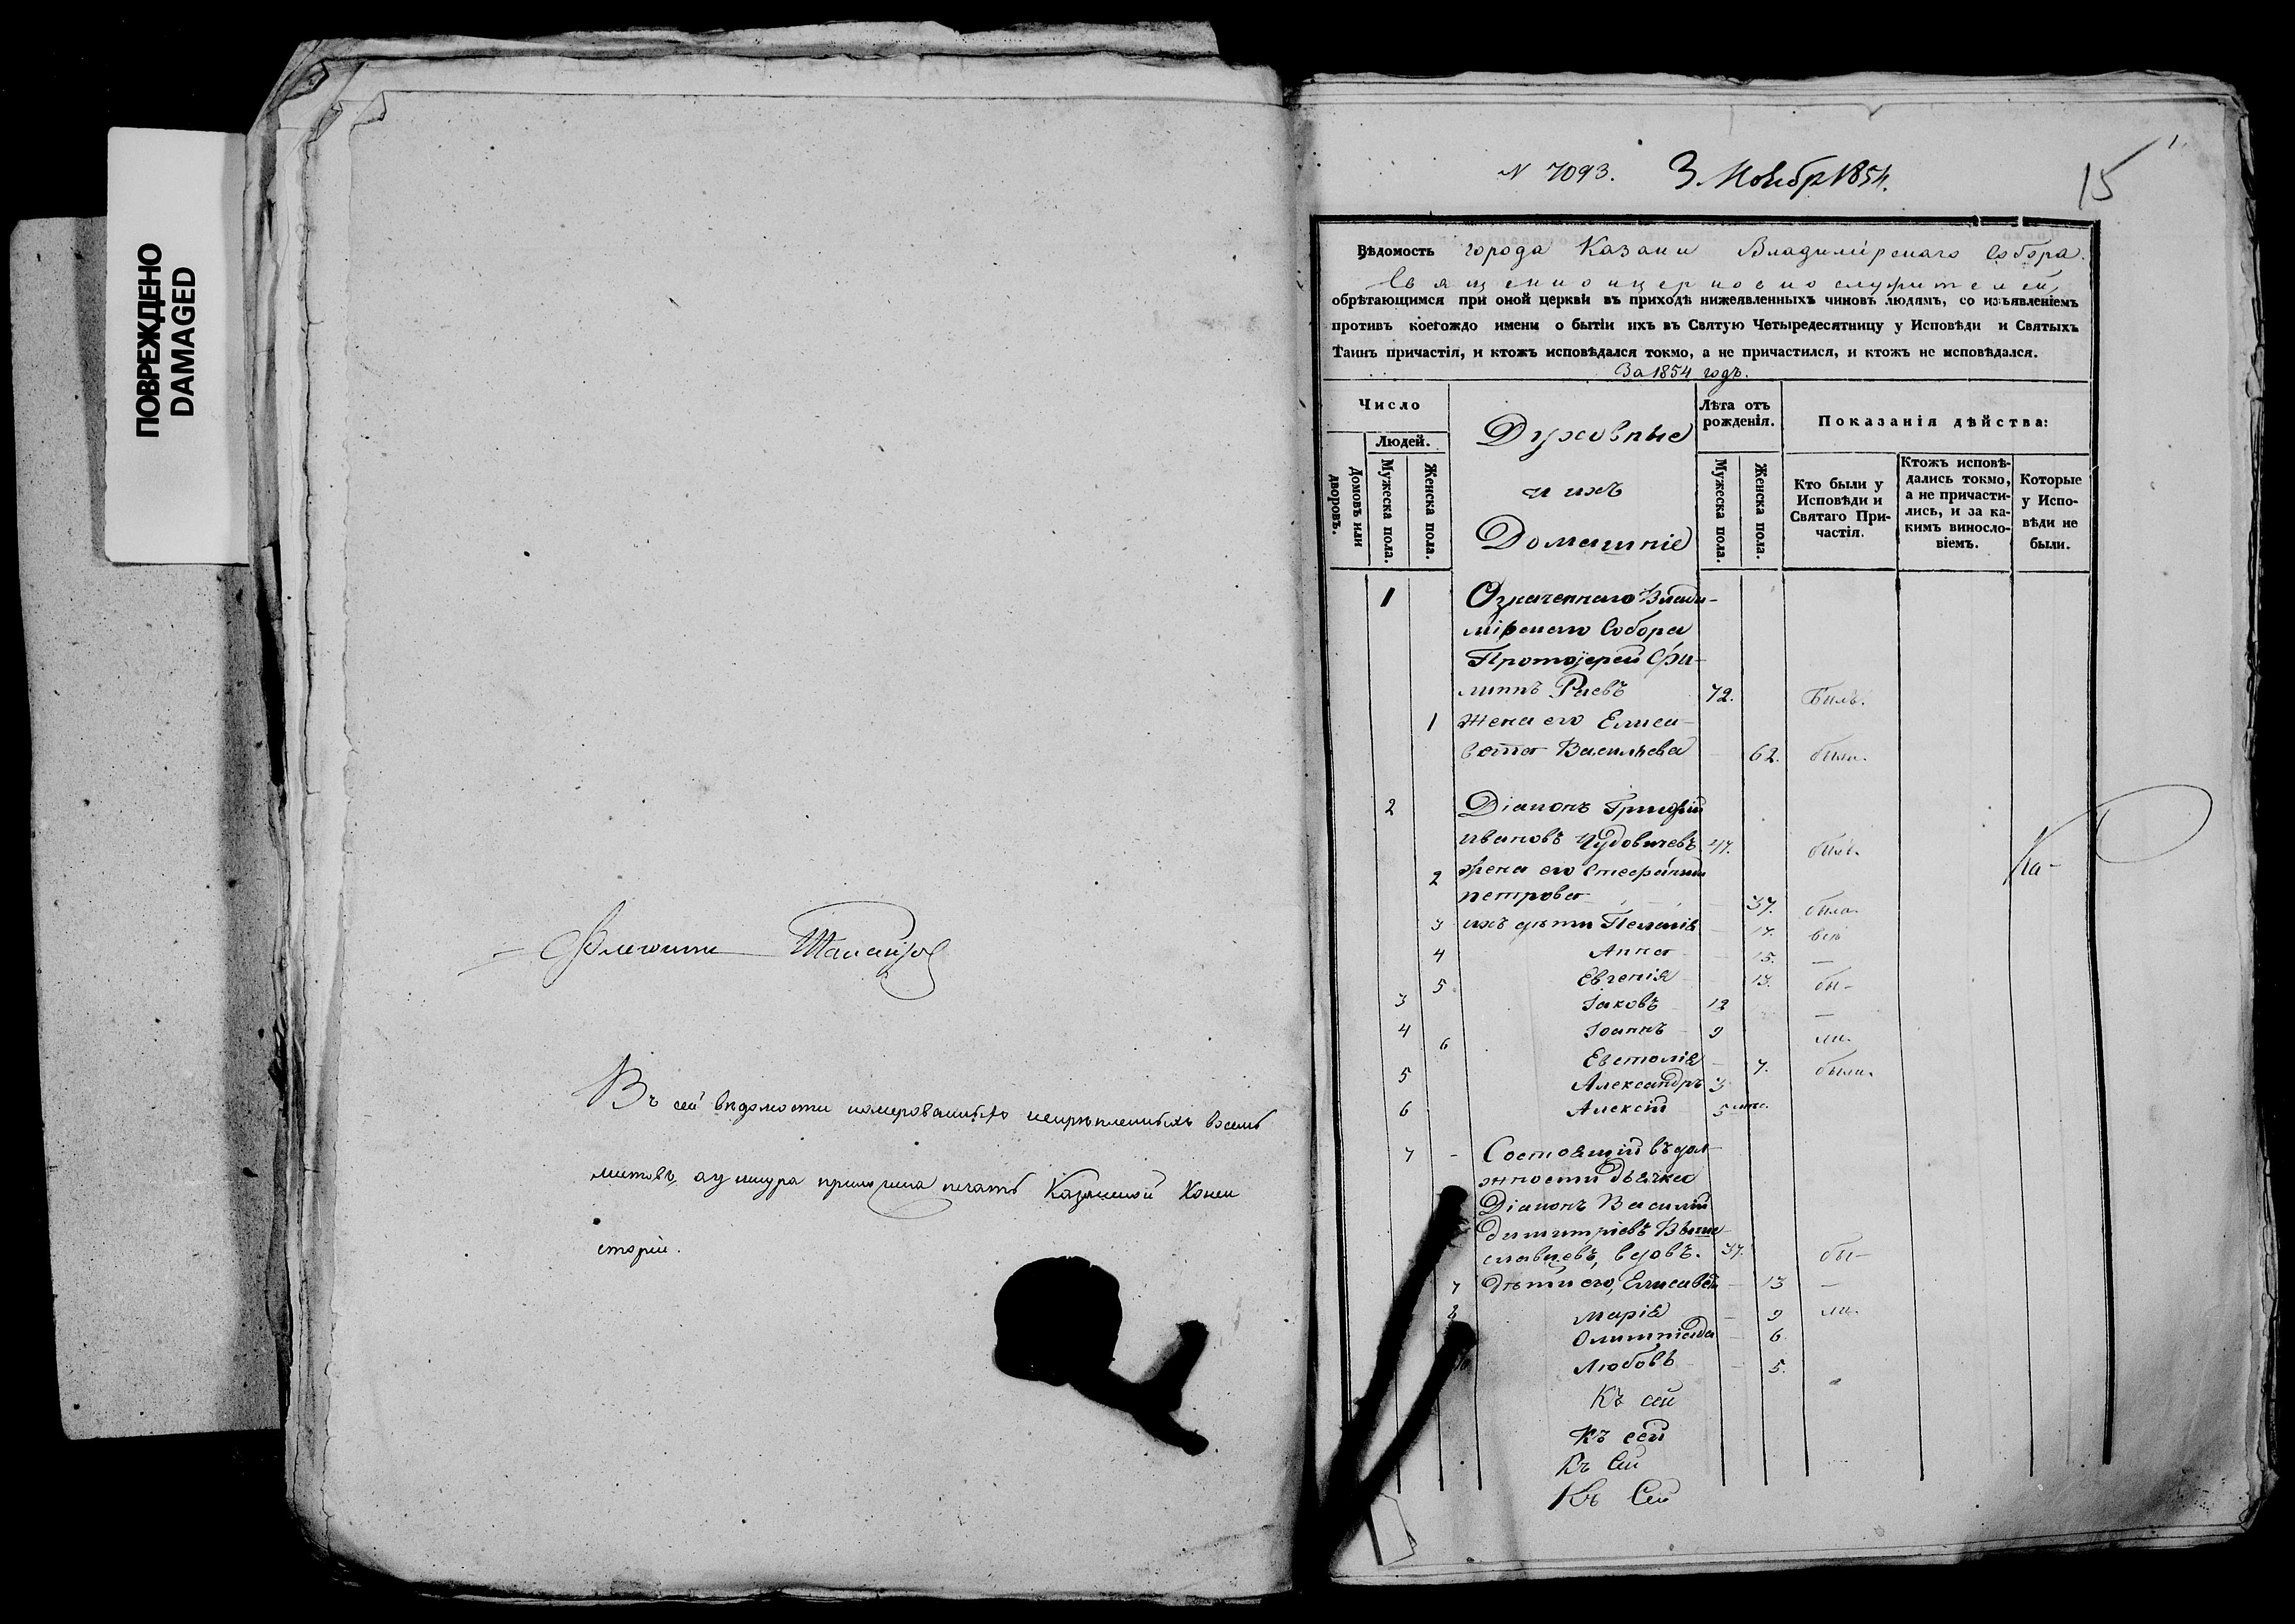 ПОВРЕЖДЕНО
DAMAGED
Въ сей ведомости номерованныхъ неприкленныхъ восемь
листовъ, а у шнура приложена печать Казанской Конси
сторіи.
N 7093. 3 Ноябр 1854.
15
Вѣдомость города Казани Владимірскаго Собора.
Священноицерковнослужителей,
обрѣтающимся при оной церкви въ приходѣ нижеявленныхъ чиновъ людямъ, со изъявленіемъ
противъ коегождо имени о бытіи ихъ въ Святую Четыредесятницу у Исповѣди и Святыхъ
Таинъ причастія, и ктожъ исповѣдался токмо, а не причастился, и ктожъ не исповѣдался.
За 1854 годъ.
Число
Людей.
Домовъ или дворовъ.
Мужеска пола.
Женска пола.
Духовные
и ихъ
Домашніе
Лѣта отъ рожденія.
Мужеска пола.
Женска пола.
Показанія дѣйства:
Кто были у Исповѣди и Святаго Причастія.
Ктожъ исповѣ-
дались токмо,
а не причасти-
лись, и за ка-
кимъ винословіемъ.
Которые у Исповѣди не были.
1 Означеннаго Влади-
мірскаго Собора
Протоіерей Фи-
липпъ Раевъ 72. Былъ.
1 Жена его Елиса-
вета Васильева 62. была.
2 Діаконъ Григорій
Ивановъ Чудовичевъ 47. былъ.
Ка-
2 Жена его Стефанида
Петрова 37. была.
3 ихъ дѣти Пелагія 17. всѣ
4 Анна 15. —
5 Евгенія 13. бы-
3 Іаковъ 12 —
4 Іоаннъ 9 ли.
6 Евстолія 7. были.
5 Александръ 3
6 Алексій 5 мѣс.
7 - Состоящій въ дол-
жности дьячка
Діаконъ Василій
Димитріевъ Выше
славцевъ, вдовъ. 37. бы-
7 Дѣти его, Елисавета 13 —
8 Марія 9 ли.
Олимпіада 6
10 Любовь 5.
Къ сей
Къ сей
Къ Сей
Къ Сей